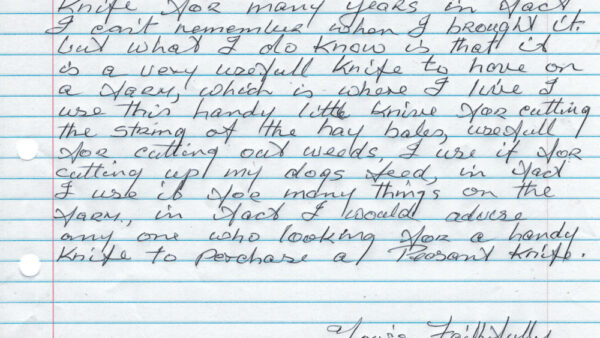 Knife for many years in fact
I can't remember when I brought it.
but what I do know is that it
is a very usefull Knife to have on
a farm, which is where I live I
use this handy little Knive for cutting
the string of the hay bales, usefull
for cutting out weeds, I use it for
cutting up my dogs feed, in fact
I use it for many things on the
farm, in fact I would advise
any one who looking for a handy
Knife to perchase a Peasant Knife.
Yours Faithfully